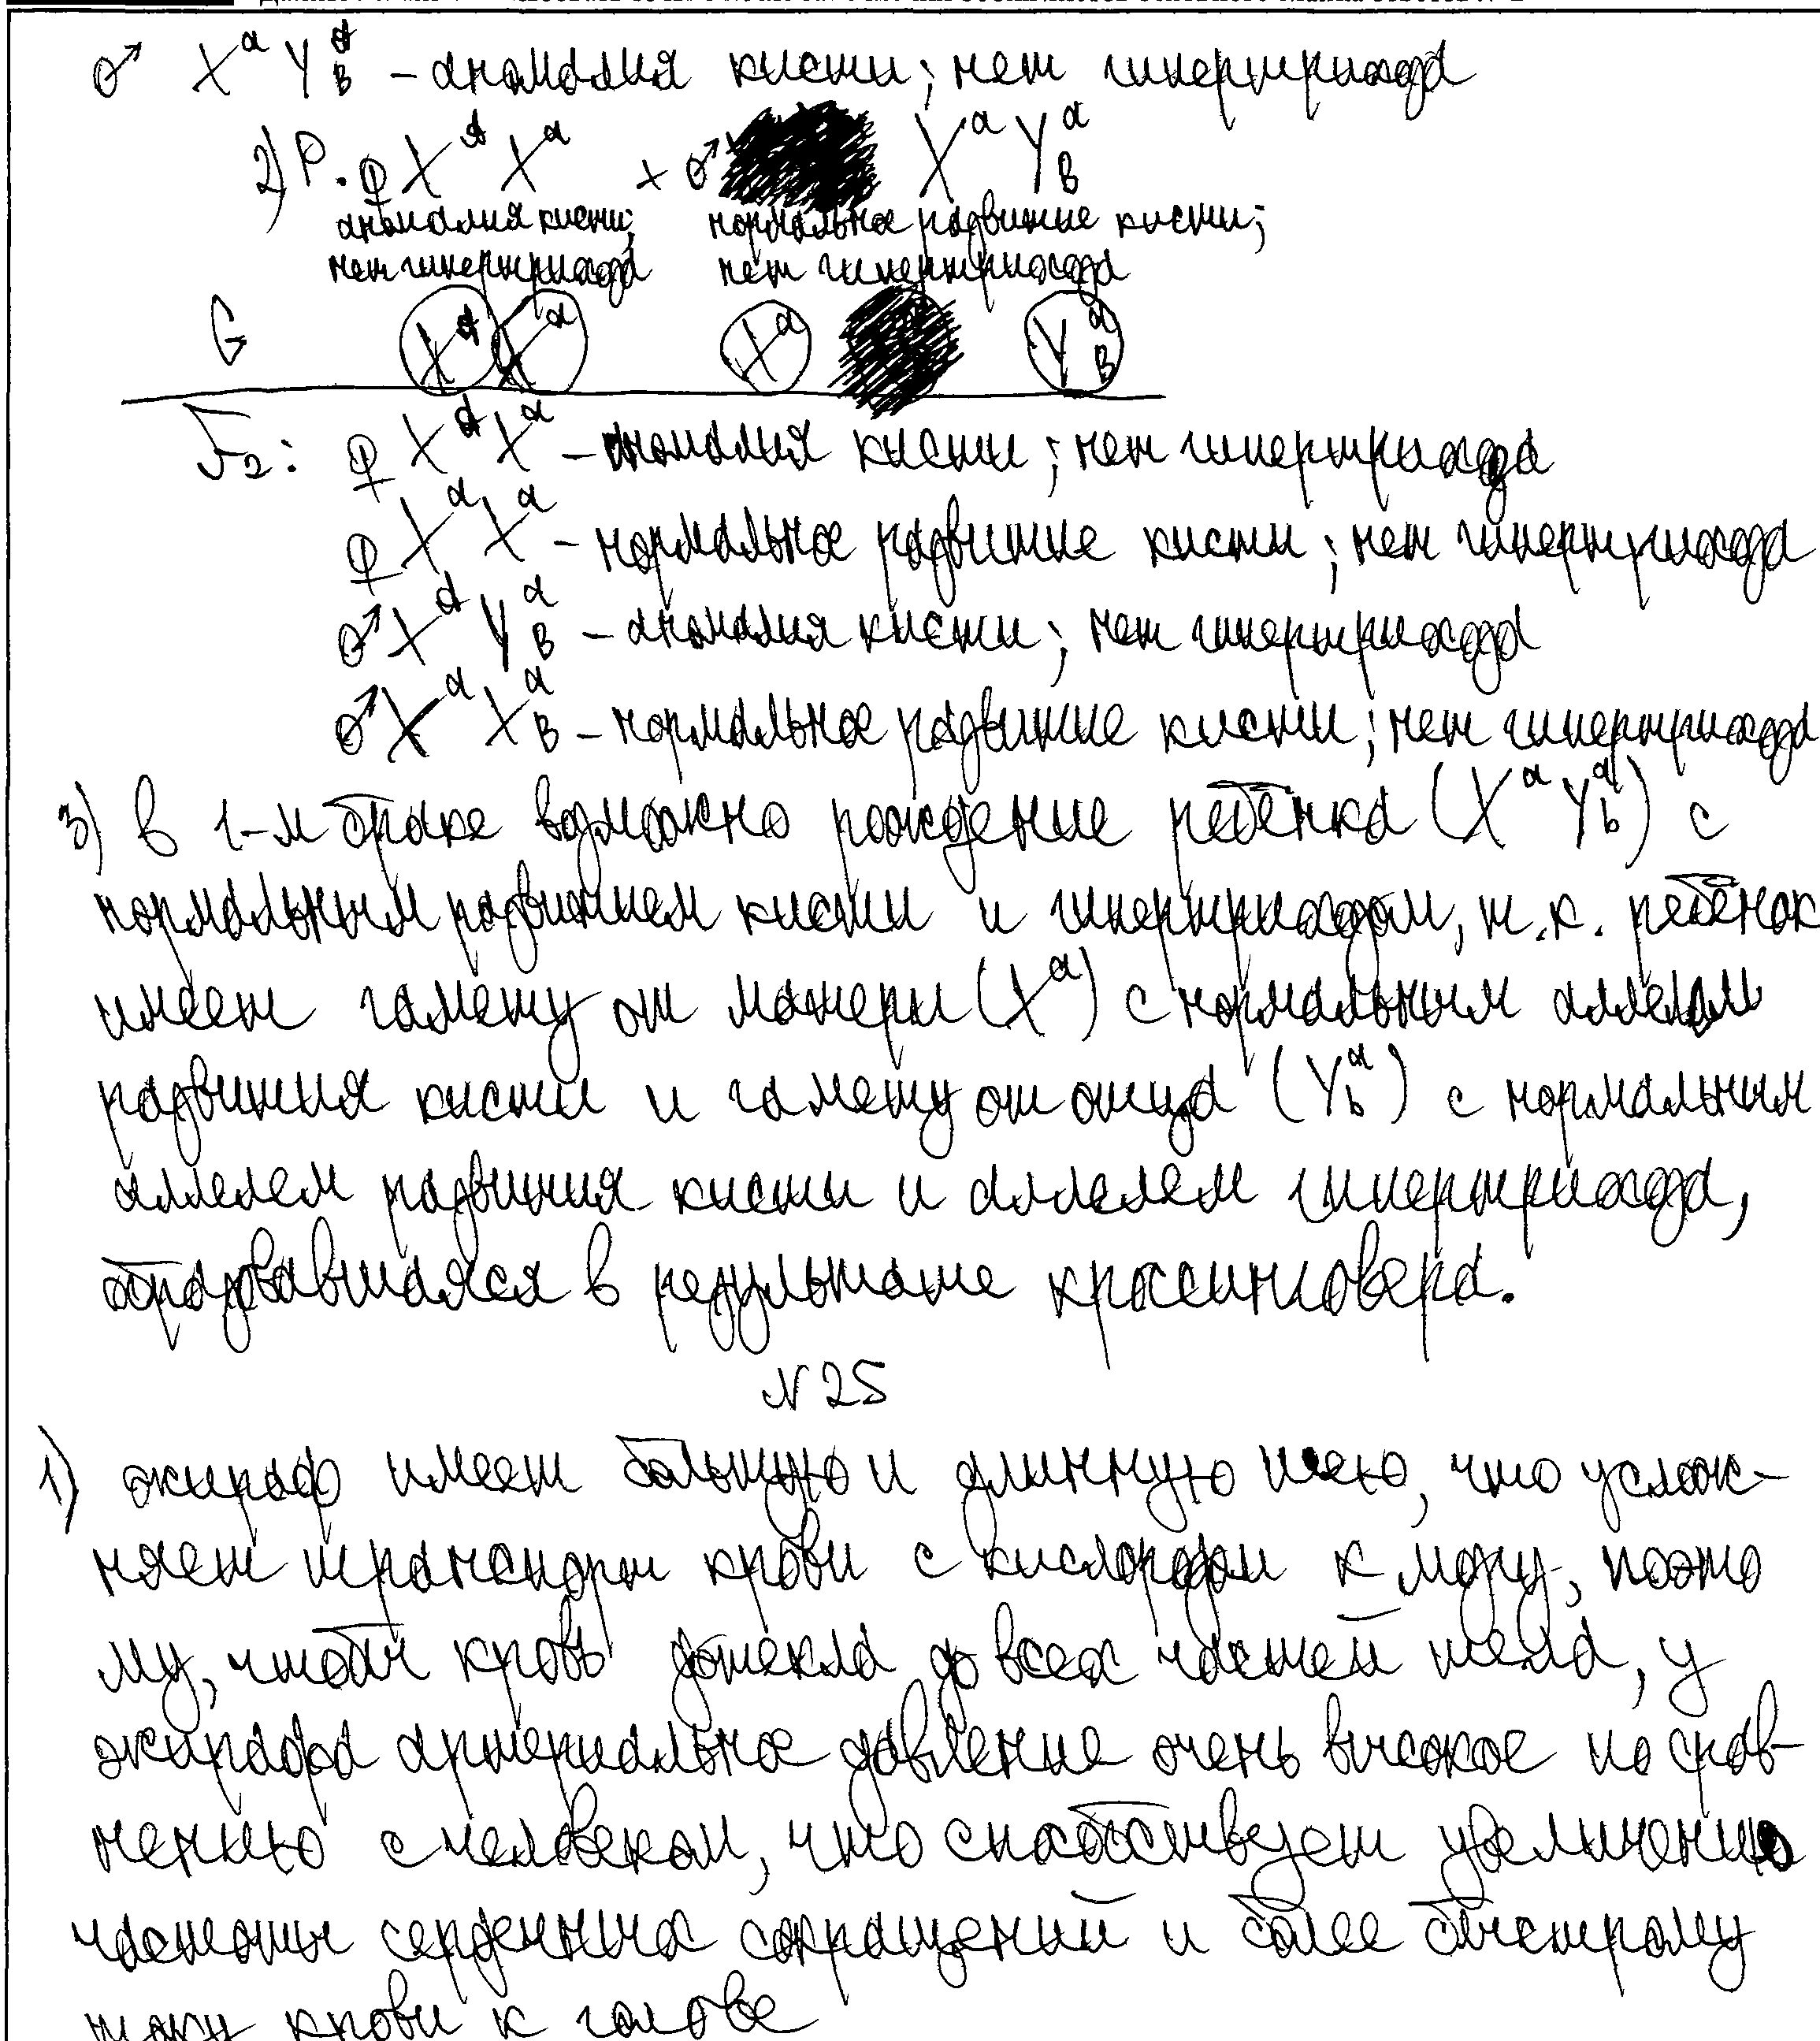 ♂ X^A Y^A_B – аномалия кисти; нет гипертрихоза
2) P. ♀ X^A X^a × ♂ X^a Y^a_B
аномалия кисти; нормальное развитие кисти;
нет гипертрихоза нет гипертрихоза
G X^A X^a X^a Y^a_B
F2: ♀ X^A X^a – аномалия кисти; нет гипертрихоза
♀ X^a X^a – нормальное развитие кисти; нет гипертрихоза
♂ X^A Y^a_B – аномалия кисти; нет гипертрихоза
♂ X^a X^a_B – нормальное развитие кисти; нет гипертрихоза
3) в 1-м браке возможно рождение ребёнка (X^a Y^a_b) с
нормальным развитием кисти и гипертрихозом, т.к. ребёнок
имеет гамету от матери (X^a) с нормальным аллелем
развития кисти и гамету от отца (Y^a_b) с нормальным
аллелем развития кисти и аллелем гипертрихоза,
образовавшаяся в результате кроссинговера.
N 25
1) жираф имеет большую и длинную шею, что услож-
няет транспорт крови с кислородом к мозгу, поэто
му, чтобы кровь дотекла до всех частей тела, у
жирафа артериальное давление очень высокое по срав-
нению с человеком, что способствует увеличению
частоты сердечных сокращений и более быстрому
току крови к голове